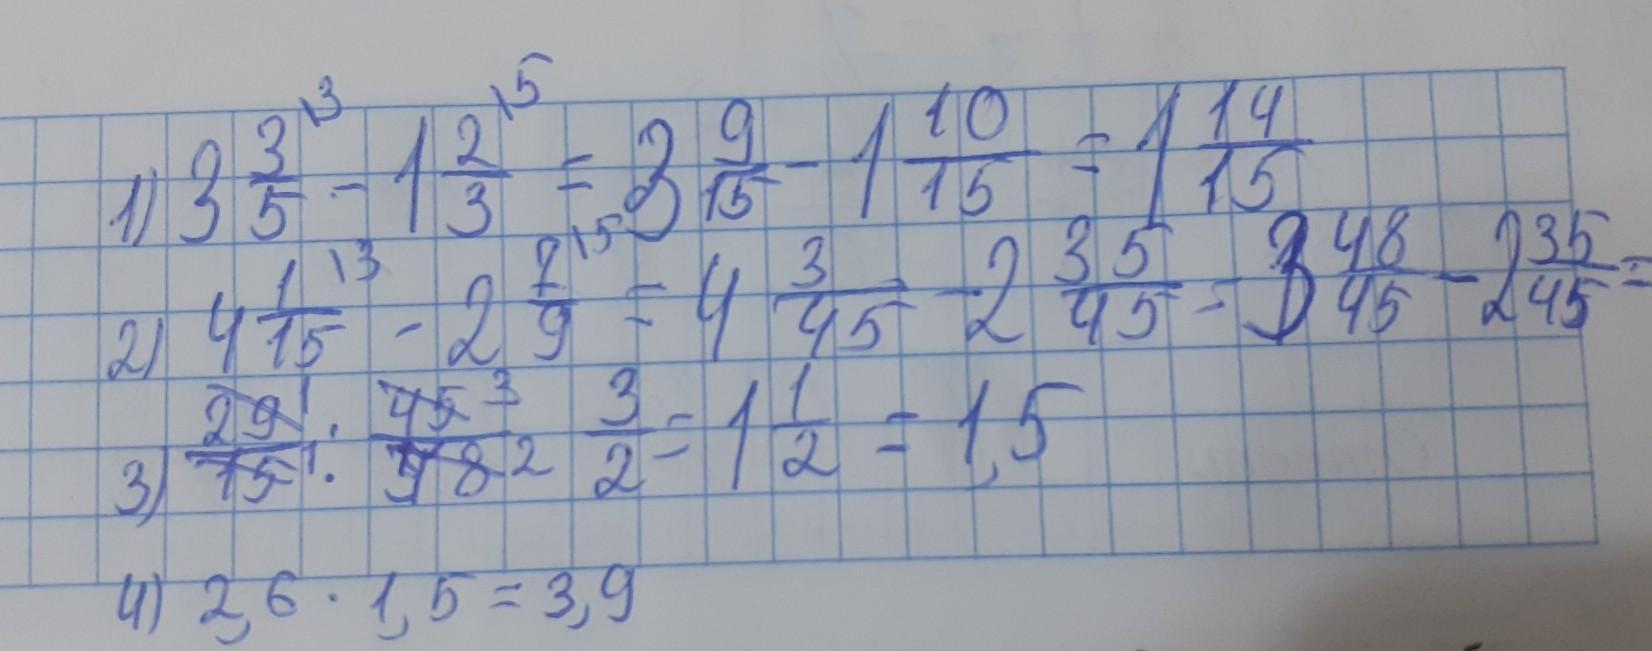 1) 3 3/5 \3 - 1 2/3 \5 = 3 9/15 - 1 10/15 = 1 14/15
2) 4 1/15 \3 - 2 7/9 \5 = 4 3/45 - 2 35/45 = 3 48/45 - 2 35/45 =
3) 29 1/15 1 : 45 3/58 2 3/2 = 1 1/2 = 1,5
4) 2,6 · 1,5 = 3,9